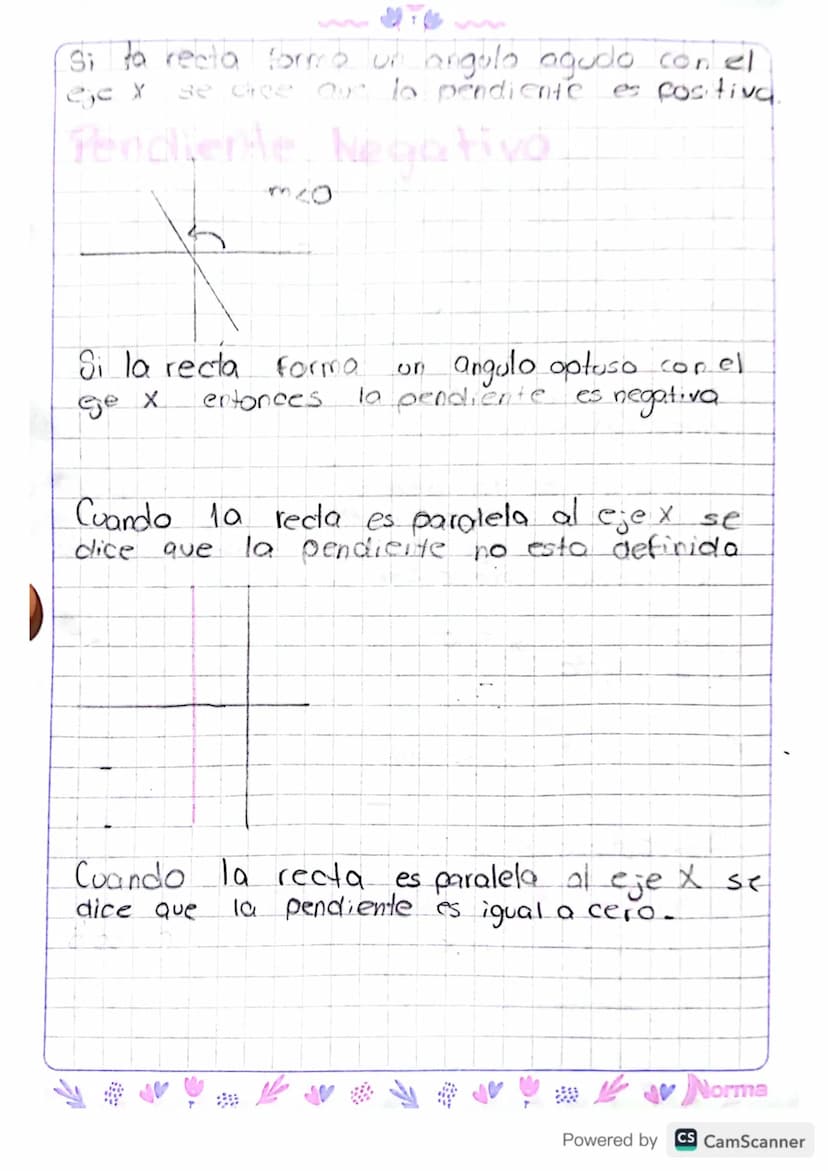 Si la recta forma un angulo agudo con el
eje x se dice que la pendiente es positiva.
Pendiente Negativo
m<0
Si la recta forma un angulo optuso con el
eje x entonces la pendiente es negativa
Cuando la recta es paralela al eje x se
dice que la pendiente no esta definida
Cuando la recta es paralela al eje X se
dice que la pendiente es igual a cero.
Norma
Powered by CS CamScanner